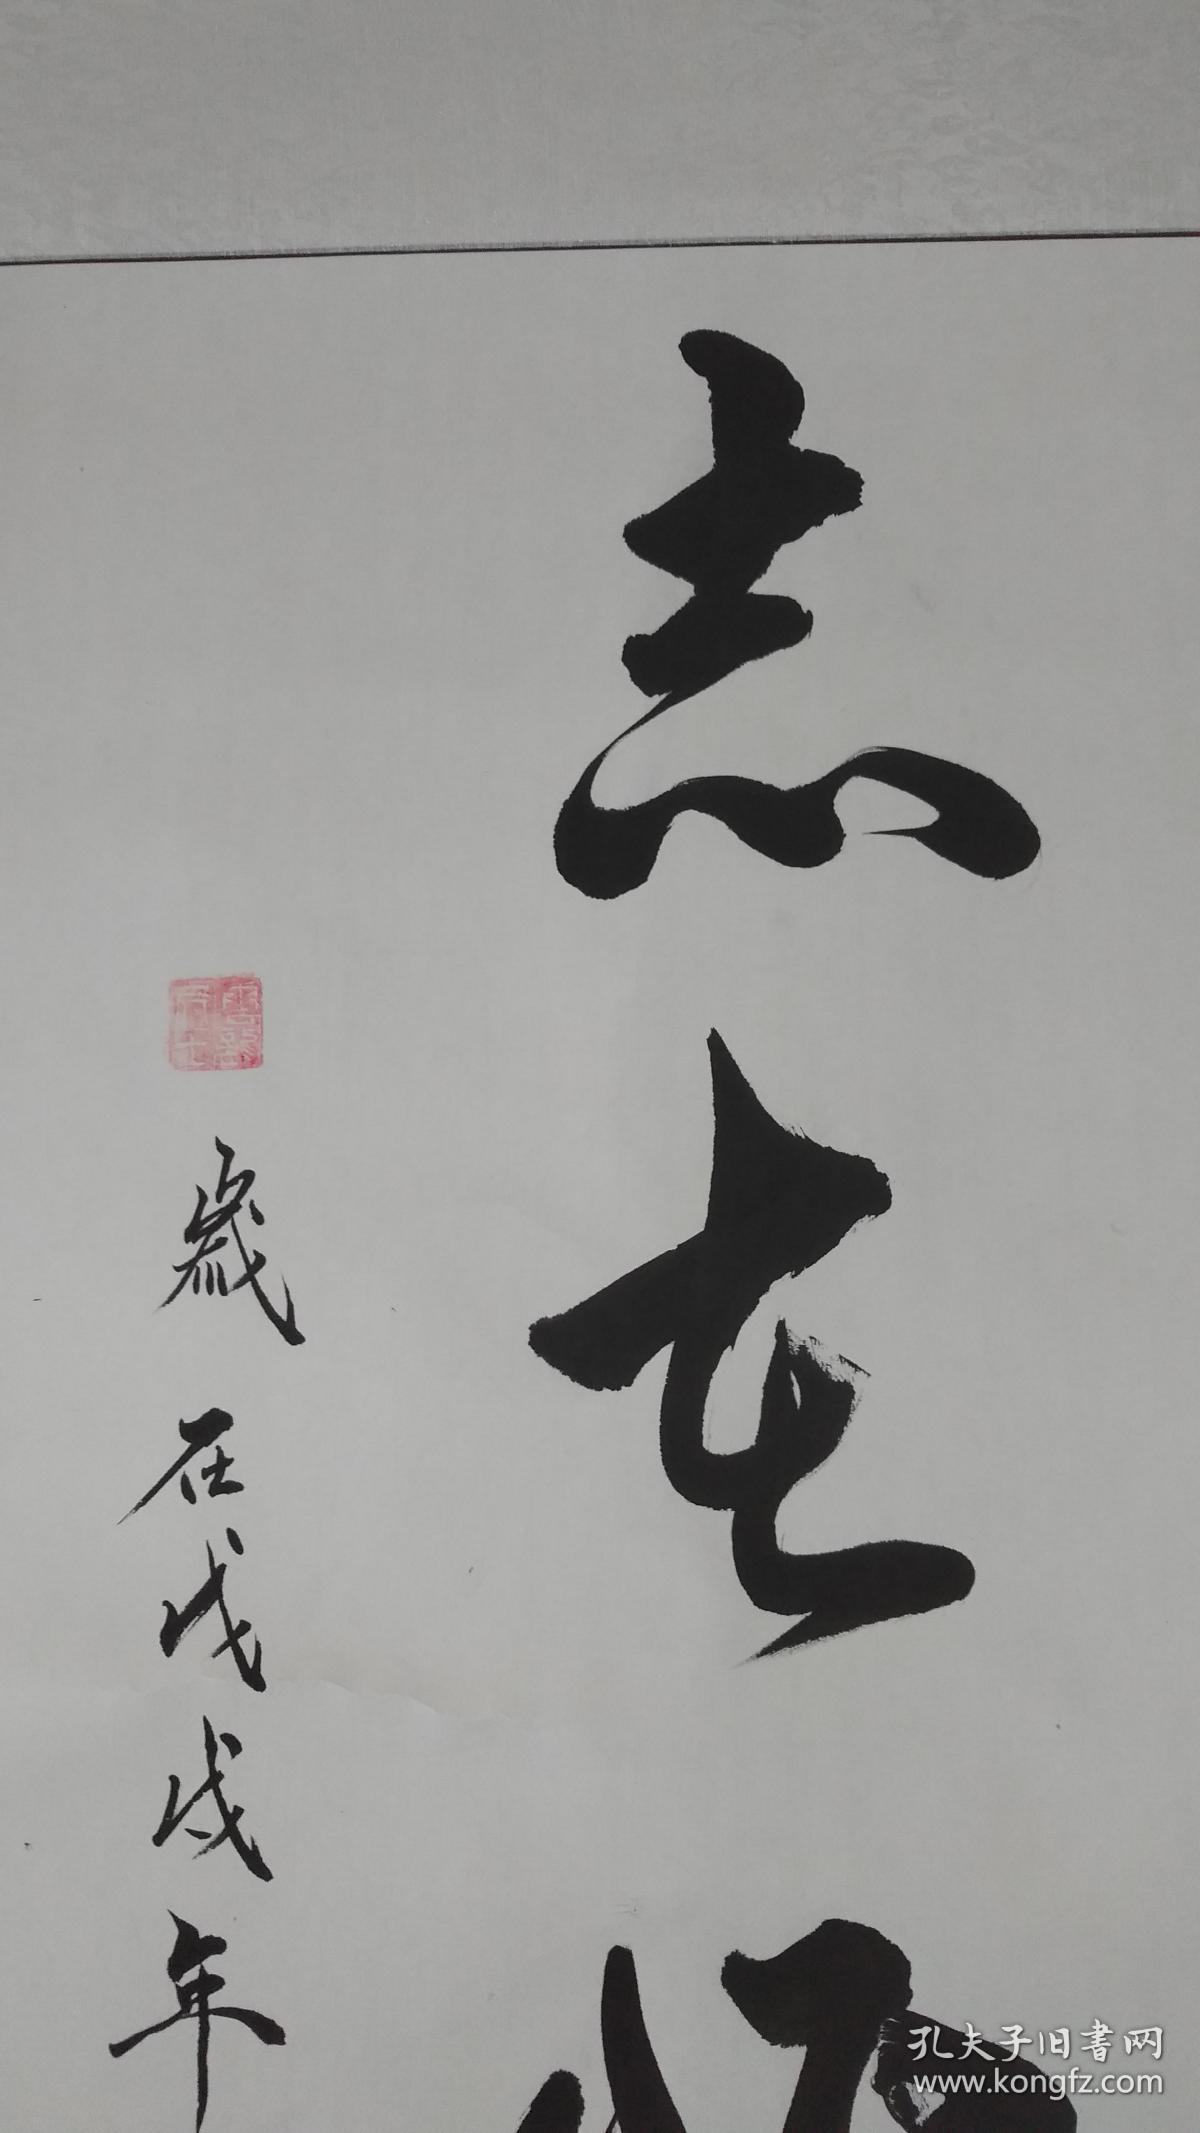 志在
歲在戊戌年
孔夫子旧書网
www.kongfz.com